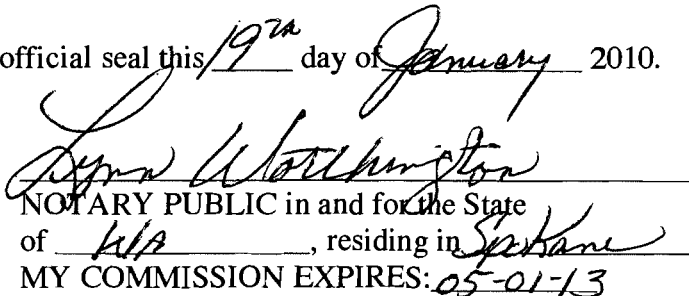 official seal this 19th day of January 2010.
Lynn Worthington
NOTARY PUBLIC in and for the State
of WA, residing in Spokane
MY COMMISSION EXPIRES: 05-01-13